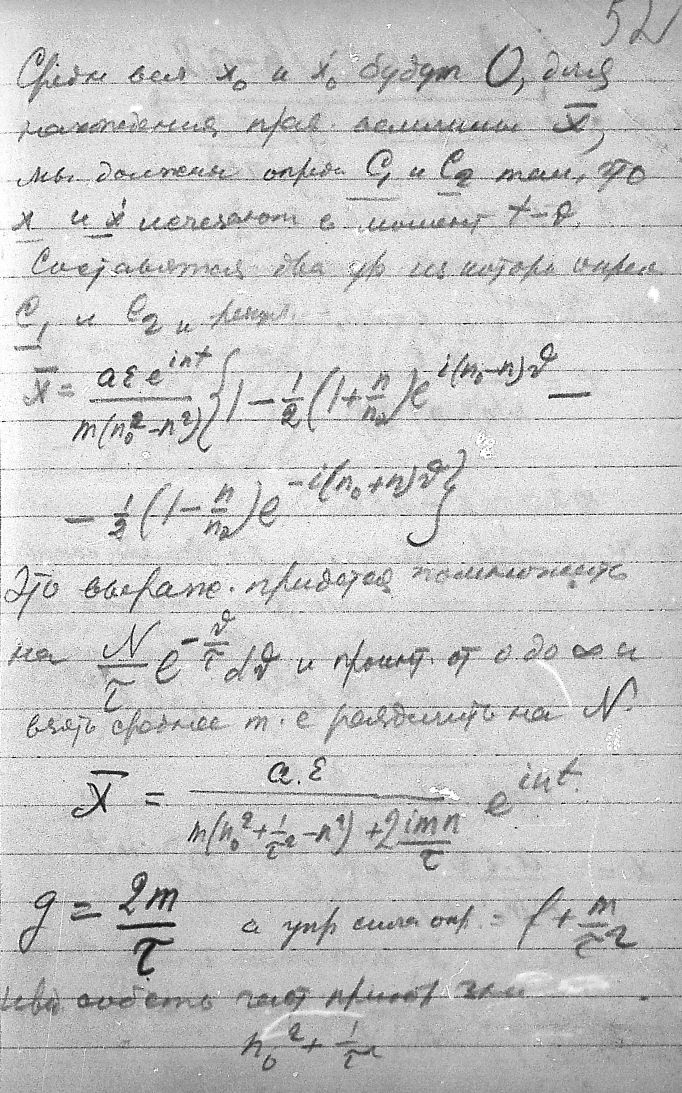 52
Средн вел x₀ и ẋ₀ будут 0, для
нахождения прав. величины x̅,
мы должны опред. C₁ и C₂ так, что
x и ẋ исчезают в момент t-ϑ.
Составятся два ур из которы опред
C₁ и C₂ и
x̅ = aεe^{int}/m(n₀²-n²) {1 - 1/2 (1+n/n₂) e^{i(n₀-n)ϑ} —
— 1/2 (1-n/n₂) e^{-i(n₀+n)ϑ}}
Это выраж. придется помножить
на N/τ e^{-ϑ/τ} dϑ и проинт. от 0 до ∞ и
взять среднее т.е разделить на N.
x̅ = a.ε/(m(n₀²+1/τ²-n²)+2imn/τ) e^{int}
g = 2m/τ а упр сила опр. = f + m/τ²
част
n₀² + 1/τ²